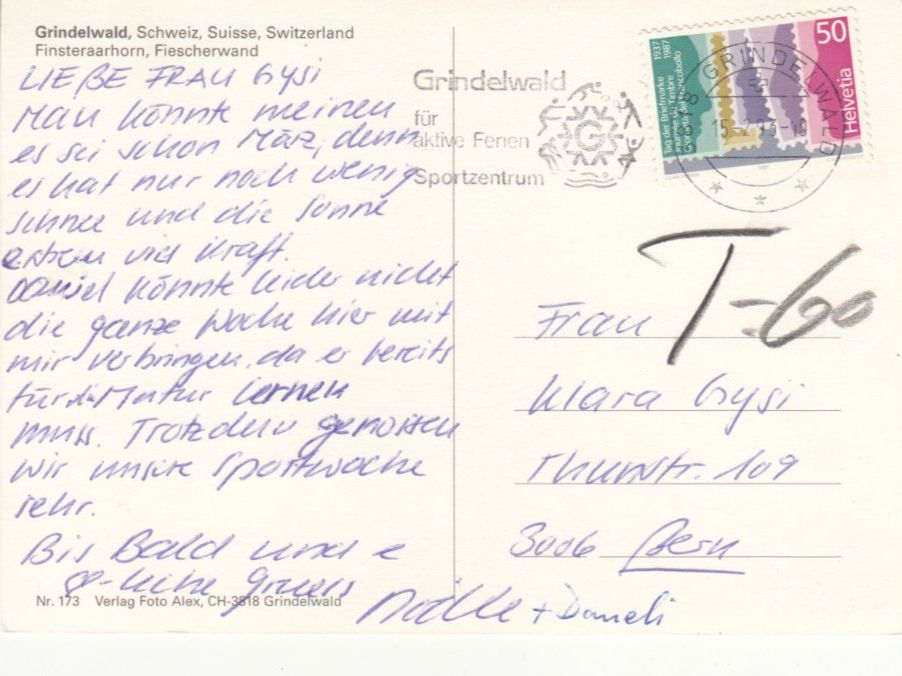 Grindelwald, Schweiz, Suisse, Switzerland
Finsteraarhorn, Fiescherwand
LIEBE FRAU Gysi
Man könnte meinen
es sei schon März, denn
es hat nur noch wenig
schnee und die Sonne
extrem viel Kraft.
Daniel könnte leider nicht
die ganze Woche hier mit
mir verbringen, da er bereits
für die Matur lernen
muss. Trotzdem genossen
wir unsere Sportwoche
sehr.
Bis Bald und e
-liche Gruess
+ Daneli
Nr. 173 Verlag Foto Alex, CH-3818 Grindelwald
Grindelwald
für
aktive Ferien
Sportzentrum
G
1937
1987
Tag der Briefmarke
Journée du Timbre
Giornata del Francobollo
50
Helvetia
GRINDELWALD
T-60
Frau
Klara Gysi
Thunstr. 109
3006 Bern